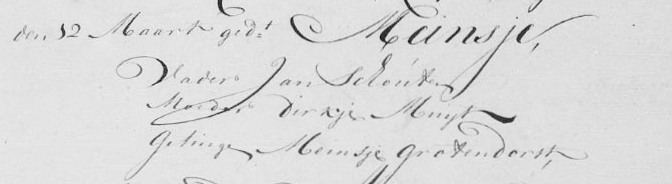 den 12 Maart gedt Meinsje,
Vader Jan Schouten
Moeder Dirkje Muijt
Getuige Meinsje Grotendorst,